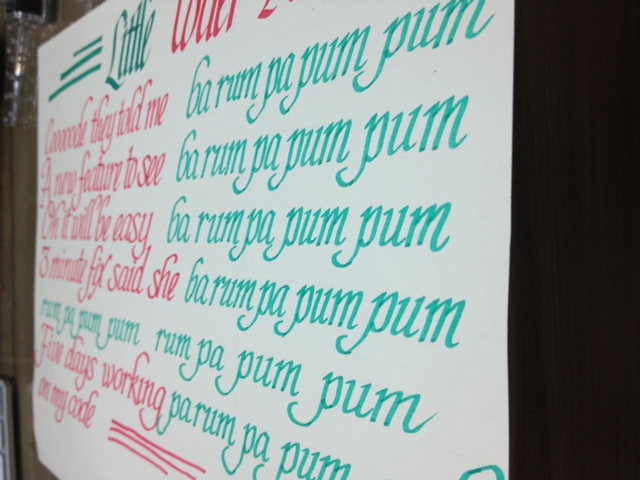 Little Coder
Cooooode they told me ba rum pa pum pum
A new feature to see ba rum pa pum pum
Oh it will be easy ba rum pa pum pum
3 minute fix said she ba rum pa pum pum
rum pa pum pum rum pa pum pum
Five days working pa rum pa pum
on my code